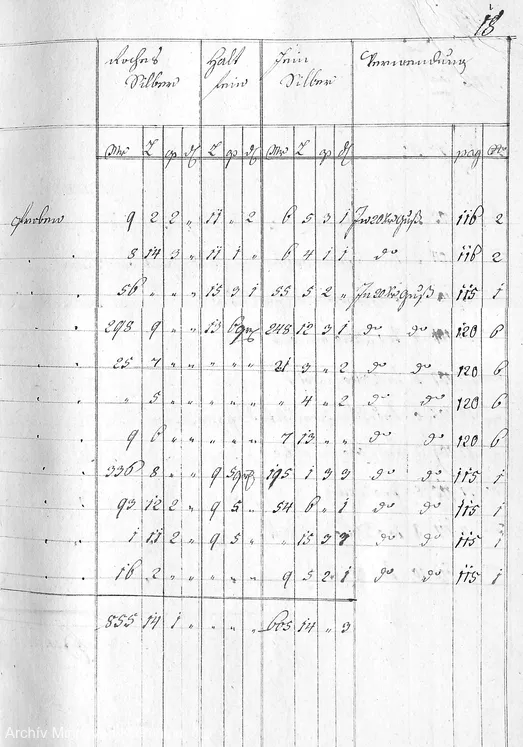 18
Rohes Halt Fein Verwendung
Silber fein Silber
Mk L q d L q d Mk L q d pag No
Proben 9 2 2 " 11 " 2 6 5 3 1 In 20kr. Guß 116 2
" " 8 14 3 " 11 1 " 6 4 1 1 do 116 2
" " 56 " " " 15 3 1 55 5 2 " In 20kr. Guß 115 1
" " 298 9 " " 13 6 248 12 3 1 do do 120 6
" " 25 7 " " " " " 21 3 " 2 do do 120 6
" " " 5 " " " " " " 4 " 2 do do 120 6
" " 9 6 " " " " " 7 13 " " do do 120 6
" " 336 8 " " 9 5 195 1 3 3 do do 115 1
" " 93 12 2 " 9 5 " 54 6 " 1 do do 115 1
" " 1 11 2 " 9 5 " " 15 3 do do 115 1
" " 16 2 " " " " " 9 5 2 1 do do 115 1
855 14 1 " " " " 605 14 " 3
Archív M